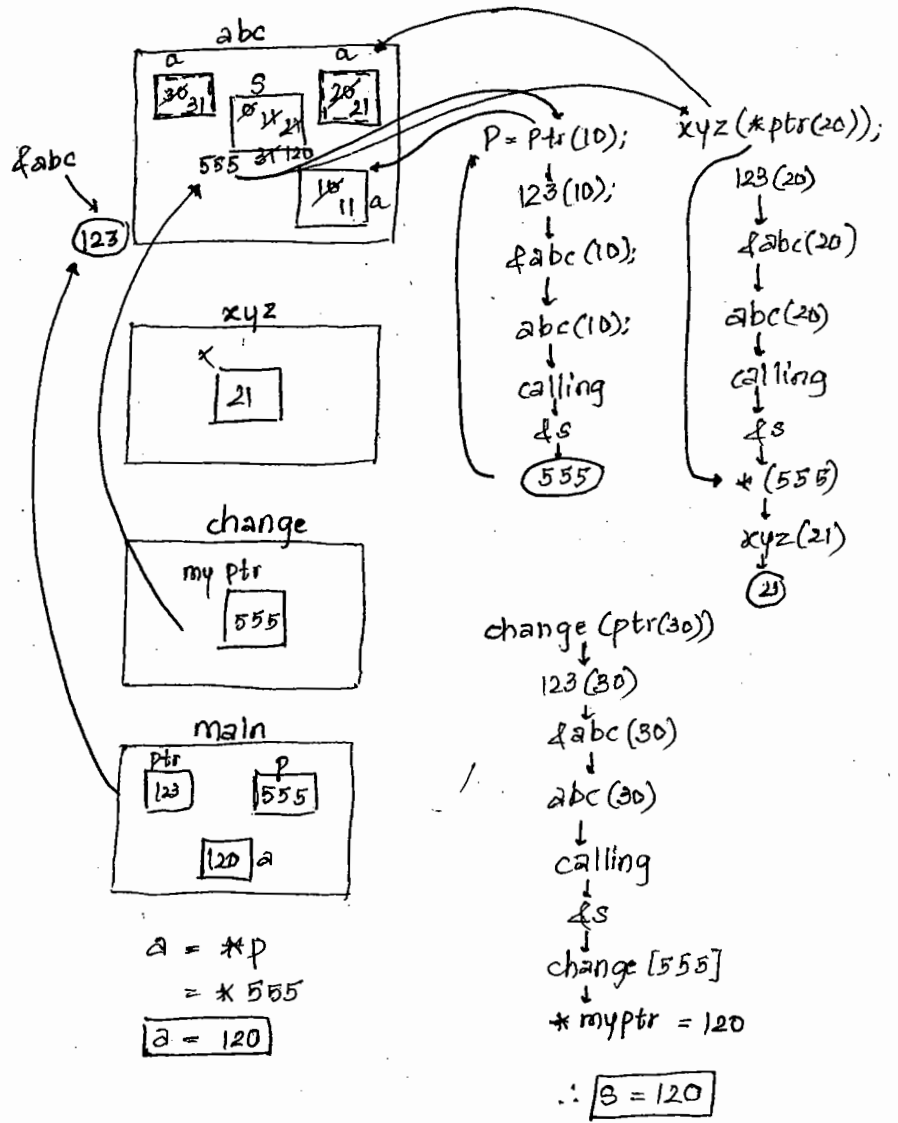 abc
a
30 31
S
0 11 21
31 120
a
20 21
555
10 11 a
&abc
123
xyz
x
21
change
my ptr
555
main
ptr
123
P
555
120 a
a = *p
= * 555
a = 120
P = Ptr(10);
123(10);
&abc(10);
abc(10);
calling
&s
555
xyz(*ptr(20));
123(20)
&abc(20)
abc(20)
calling
&s
*(555)
xyz(21)
21
change (ptr(30))
123(30)
&abc(30)
abc(30)
calling
&s
change [555]
* myptr = 120
∴ S = 120